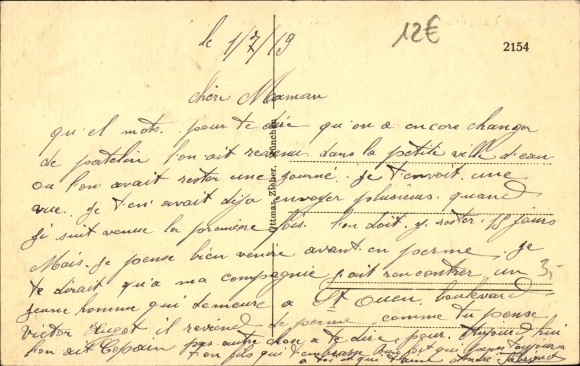 le 1/7/19
12€
2154
chère Maman
qu'el mots. pour te dire qu'on a encore changer
de patelin l'on ait revenu dans la petite ville d'eau
ou l'on avait rester une journé. Je t'envoit une
vue. Je t'en avait déja envoyer plusieurs quand
Ji suit venue la première fois. l'on doit y rester 15 jours
Mais je pense bien venire avant en perme, je
te dirait qu'a ma compagnie j'ait rencontrer un
3,-
jeune homme qui demeure a St Ouen, boulevard
Victor Hugot il revient de perme comme tu pense
bon ait Copain pas autre chose a te dire pour aujourd'hui
ton fils qui t'embrasse bien fort qui pense toujours
a toi et qui t'aime
Ottmar Zieher, München